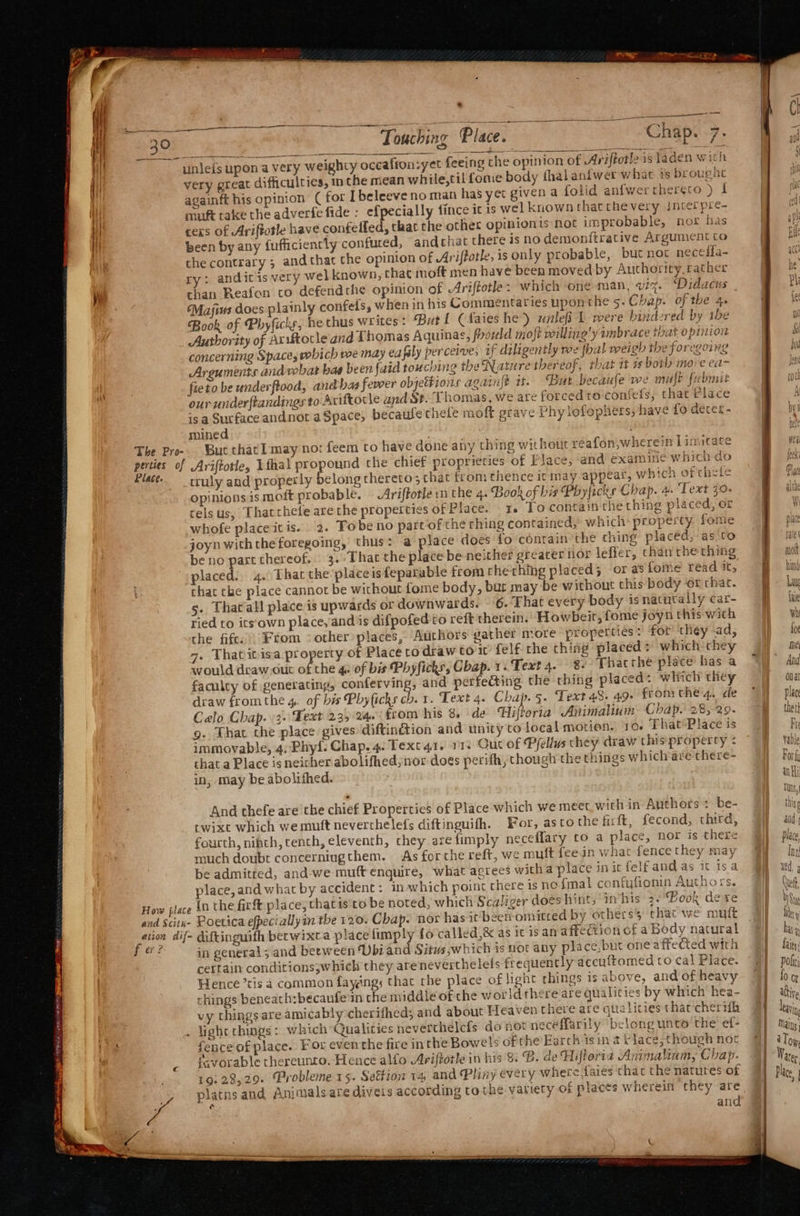 30 Touching Place. Chap. 7.
unleſs upon a very weighty occaſion: yet ſeeing the opinion of Ariſtotle is laden with
very great difficulties, in the mean while, til ſome body ſhal anſwer what is brought
againſt his opinion ( for I beleeve no man has yet given a ſolid anſwer thereto ) I
muſt take the adverſe ſide : eſpecially ſince it is wel known that the very Interpre-
ters of Ariſtotle have confeſſed, that the other opinion is not improbable, nor has
been by any ſufficiently confuted, and that there is no demonſtrative Argument to
the contrary ; and that the opinion of Ariſtotle, is only probable, but not neceſſa-
ry : and it is very wel known, that moſt men have been moved by Authority, rather
than Reaſon to defend the opinion of Ariſtotle : which one man, viz. Didacus
Maſius does plainly confeſs, when in his Commentaries upon the 5. Chap. of the 4.
Book of Phyſicks, he thus writes : But I ( ſaies he ) unleſs I were hindered by the
Authority of Ariſtotle and Thomas Aquinas, ſhould moſt willing'y imbrace that opinion
concerning Space, which we may eaſily perceive, if diligently we ſhal weigh the foregoing
Arguments and what has been ſaid touching the Nature thereof, that it is both more ea-
ſie to be underſtood, and has fewer objections againſt it. But becauſe we muſt ſubmit
our underſtandings to Ariſtotle and St. Thomas, we are forced to confeſs, that Place
is a Surface and not a Space, becauſe theſe moſt grave Phyloſophers, have ſo deter-
mined.
The Pro- But that I may not ſeem to have done any thing without reaſon, wherein I imitate
perties of Ariſtotle, I ſhal propound the chief proprieties of Place, and examine which do
Place. truly and properly belong thereto ; that from thence it may appear, which of theſe
opinions is moſt probable. Ariſtotle in the 4. Book of his Phyſicks Chap. 4. Text 30.
tels us, That theſe are the properties of Place. 1. To contain the thing placed, or
whoſe place it is. 2. To be no part of the thing contained, which property ſome
joyn with the foregoing, thus : a place does ſo contain the thing placed, as to
be no part thereof. 3. That the place be neither greater nor leſſer, than the thing
placed. 4. That the place is ſeparable from the thing placed ; or as ſome read it,
that the place cannot be without ſome body, but may be without this body or that.
5. That all place is upwards or downwards. 6. That every body is naturally car-
ried to its own place, and is diſpoſed to reſt therein. Howbeit, ſome joyn this with
the fift. From other places, Authors gather more properties : for they ad,
7. That it is a property of Place to draw to it ſelf the thing placed : which they
would draw out of the 4. of his Phyſicks, Chap. 1. Text 4. 8. That the place has a
faculty of generating, conſerving, and perfecting the thing placed : which they
draw from the 4. of his Phyſicks ch. 1. Text 4. Chap. 5. Text 48. 49. from the 4. de
Cælo Chap. 3. Text 23, 24. from his 8. de Hiſtoria Animalium Chap. 28, 29.
9. That the place gives diſtinction and unity to local motion. 10. That Place is
immovable, 4. Phyſ. Chap. 4. Text 41. 11. Out of Pſellus they draw this property :
that a Place is neither aboliſhed, nor does periſh, though the things which are there-
in, may be aboliſhed.
And theſe are the chief Properties of Place which we meet with in Authors : be-
twixt which we muſt nevertheleſs diſtinguiſh. For, as to the firſt, ſecond, third,
fourth, ninth, tenth, eleventh, they are ſimply neceſſary to a place, nor is there
much doubt concerning them. As for the reſt, we muſt ſee in what ſence they may
be admitted, and we muſt enquire, what agrees with a place in it ſelf and as it is a
place, and what by accident : in which point there is no ſmal confuſion in Authors.
How place In the firſt place, that is to be noted, which Scaliger does hint, in his 3. Book de re
and Scitu- Poetica eſpecially in the 120. Chap. nor has it been omitted by others ; that we muſt
ation dif- diſtinguiſh betwixt a place ſimply ſo called, & as it is an affection of a Body natural
fer? in general ; and between Ubi and Situs, which is not any place, but one affected with
certain conditions, which they are nevertheleſs frequently accuſtomed to cal Place.
Hence 'tis a common ſaying, that the place of light things is above, and of heavy
things beneath: becauſe in the middle of the world there are qualities by which hea-
vy things are amicably cheriſhed; and about Heaven there are qualities that cheriſh
light things : which Qualities nevertheleſs do not neceſſarily belong unto the eſ-
ſence of place. For even the fire in the Bowels of the Earth is in a Place, though not
favorable thereunto. Hence alſo Ariſtotle in his 8. B. de Hiſtoria Animalium, Chap.
19. 28, 29. Probleme 15. Section 14. and Pliny every where ſaies that the natures of
platns and Animals are divers according to the variety of places wherein they are
and